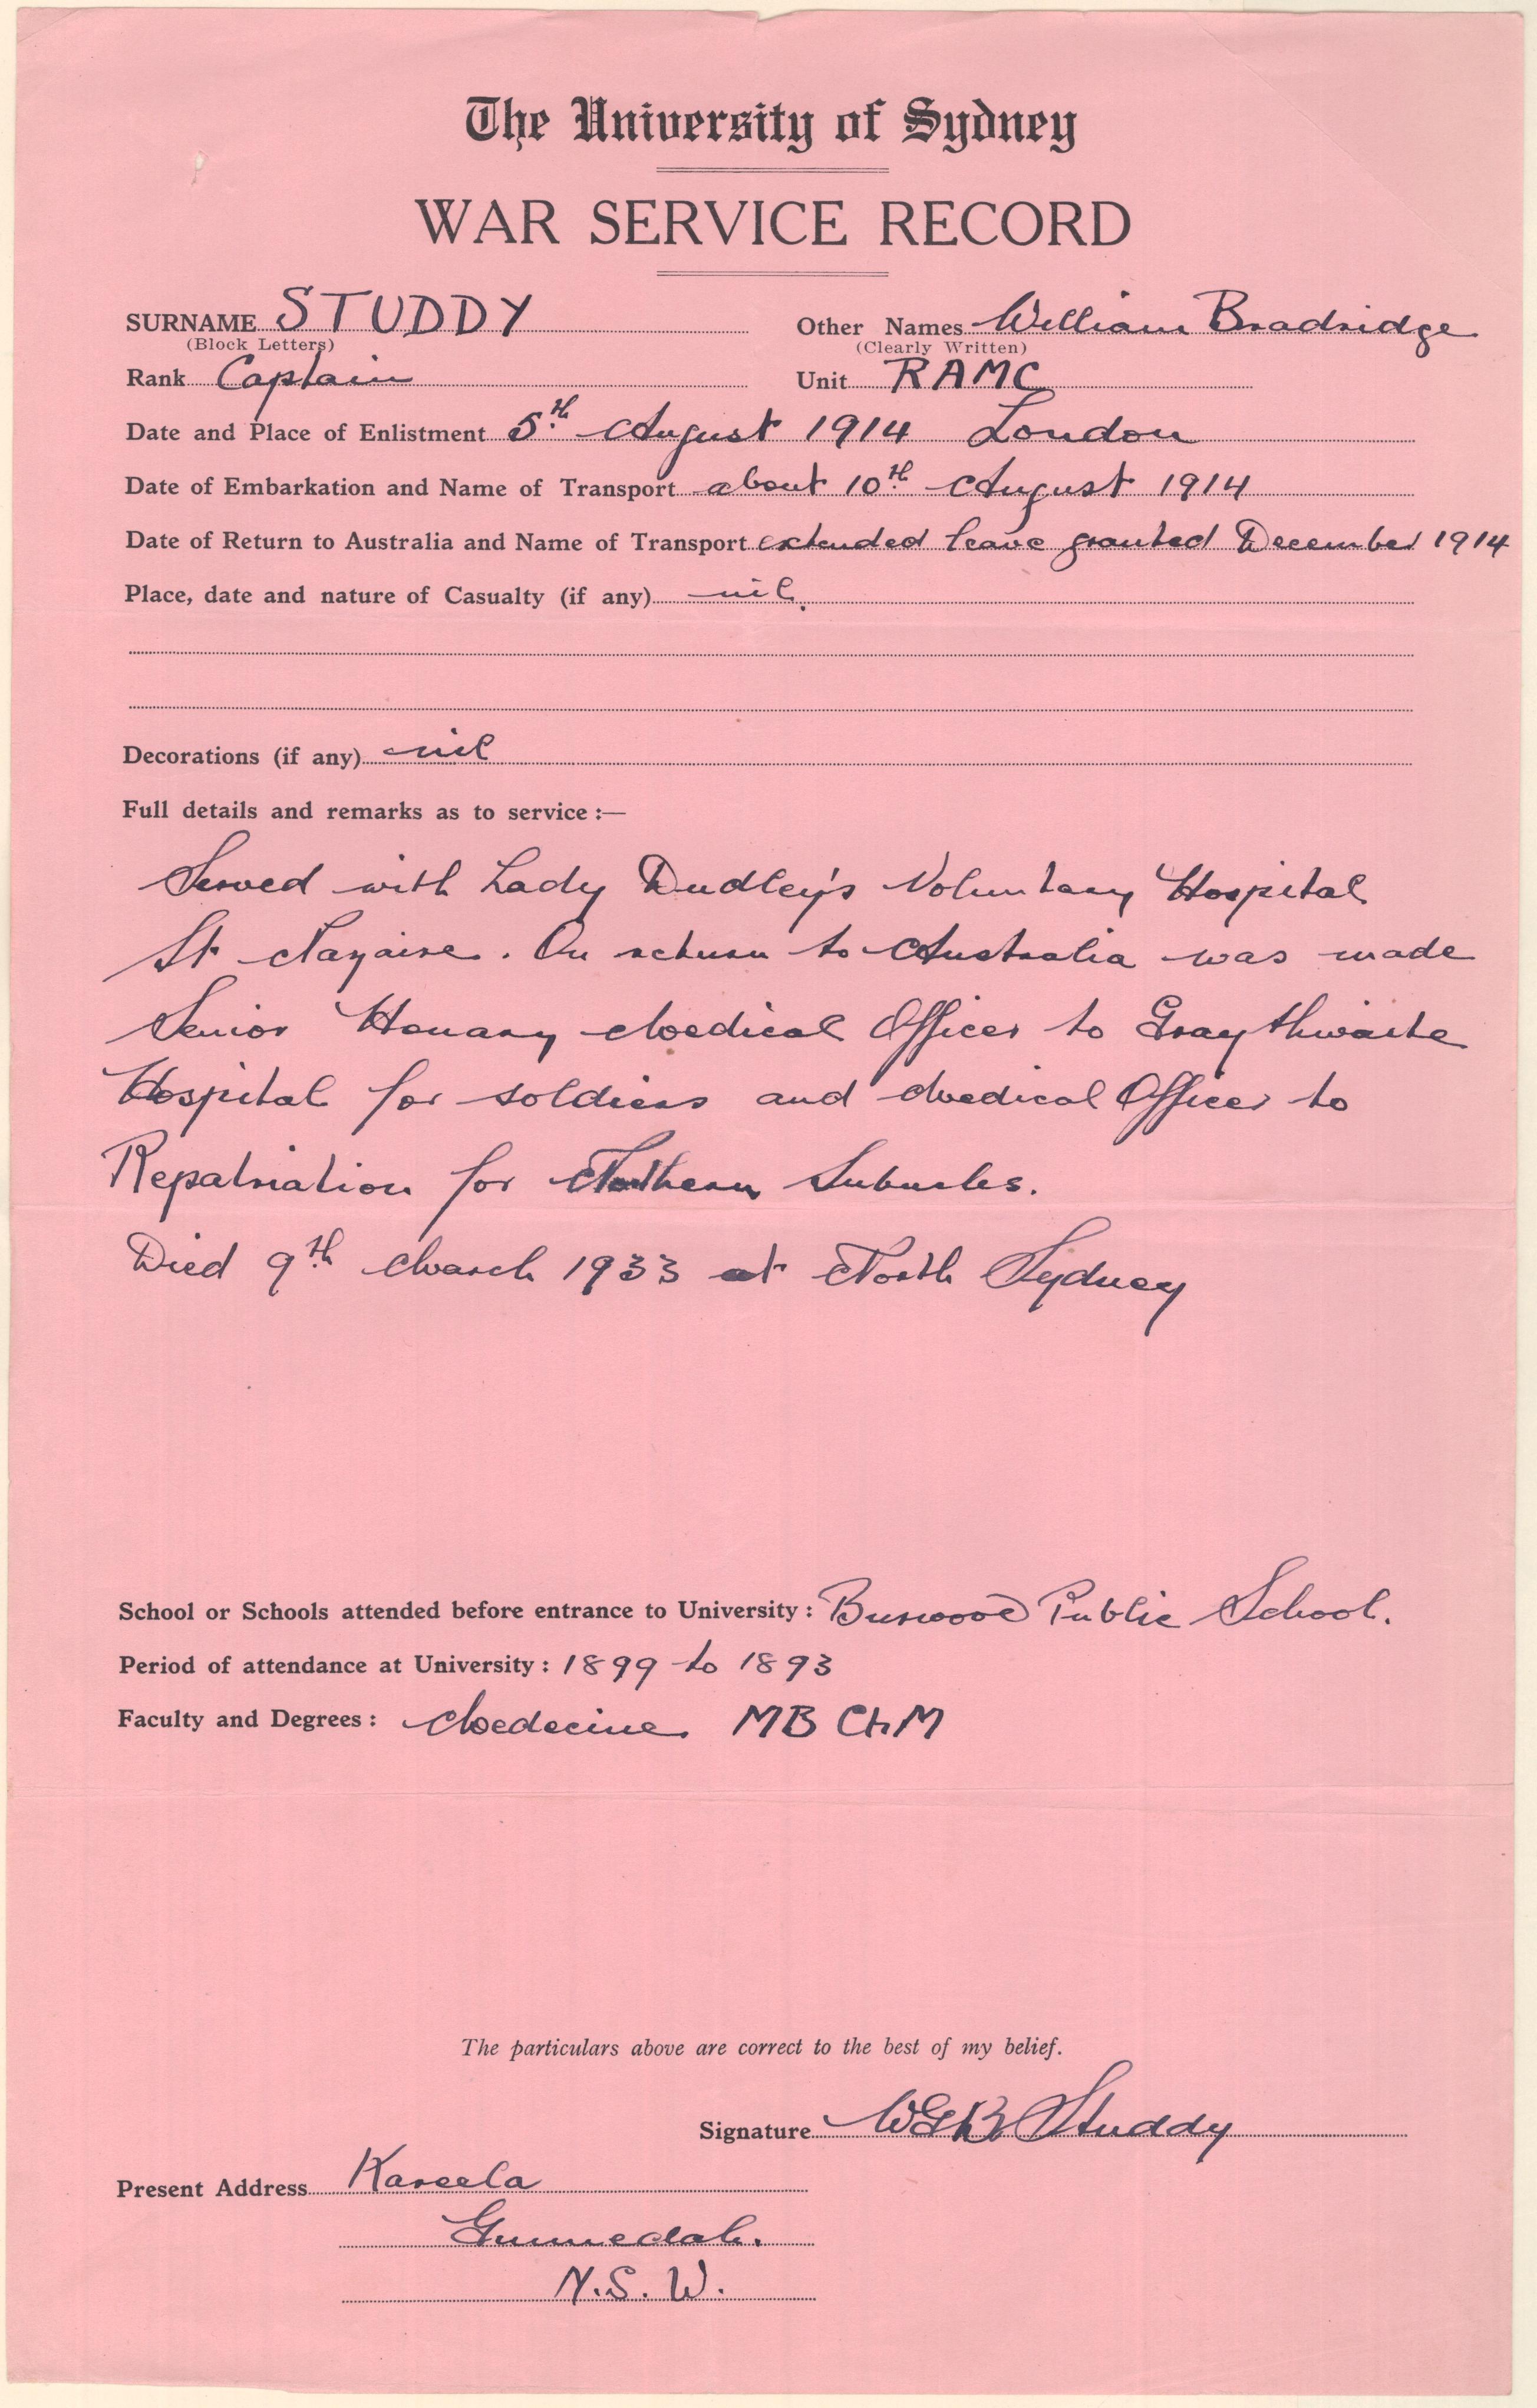 The University of Sydney
WAR SERVICE RECORD
SURNAME STUDDY Other Names William Bradridge
(Block Letters) (Clearly Written)
Rank Captain Unit RAMC
Date and Place of Enlistment 5th August 1914 London
Date of Embarkation and Name of Transport about 10th August 1914
Date of Return to Australia and Name of Transport extended leave granted December 1914
Place, date and nature of Casualty (if any) nil.
Decorations (if any) nil
Full details and remarks as to service :—
Served with Lady Dudley's Voluntary Hospital
St Nazaire. On return to Australia was made
Senior Honary Medical Officer to Graythwaite
Hospital for soldiers and Medical Officer to
Repatriation for Northern Suburbs.
Died 9th March 1933 at North Sydney
School or Schools attended before entrance to University : Burwood Public School.
Period of attendance at University : 1899 to 1893
Faculty and Degrees : Medecine MB ChM
The particulars above are correct to the best of my belief.
Signature WGB Studdy
Present Address Kareela
Gunnedah.
N.S.W.